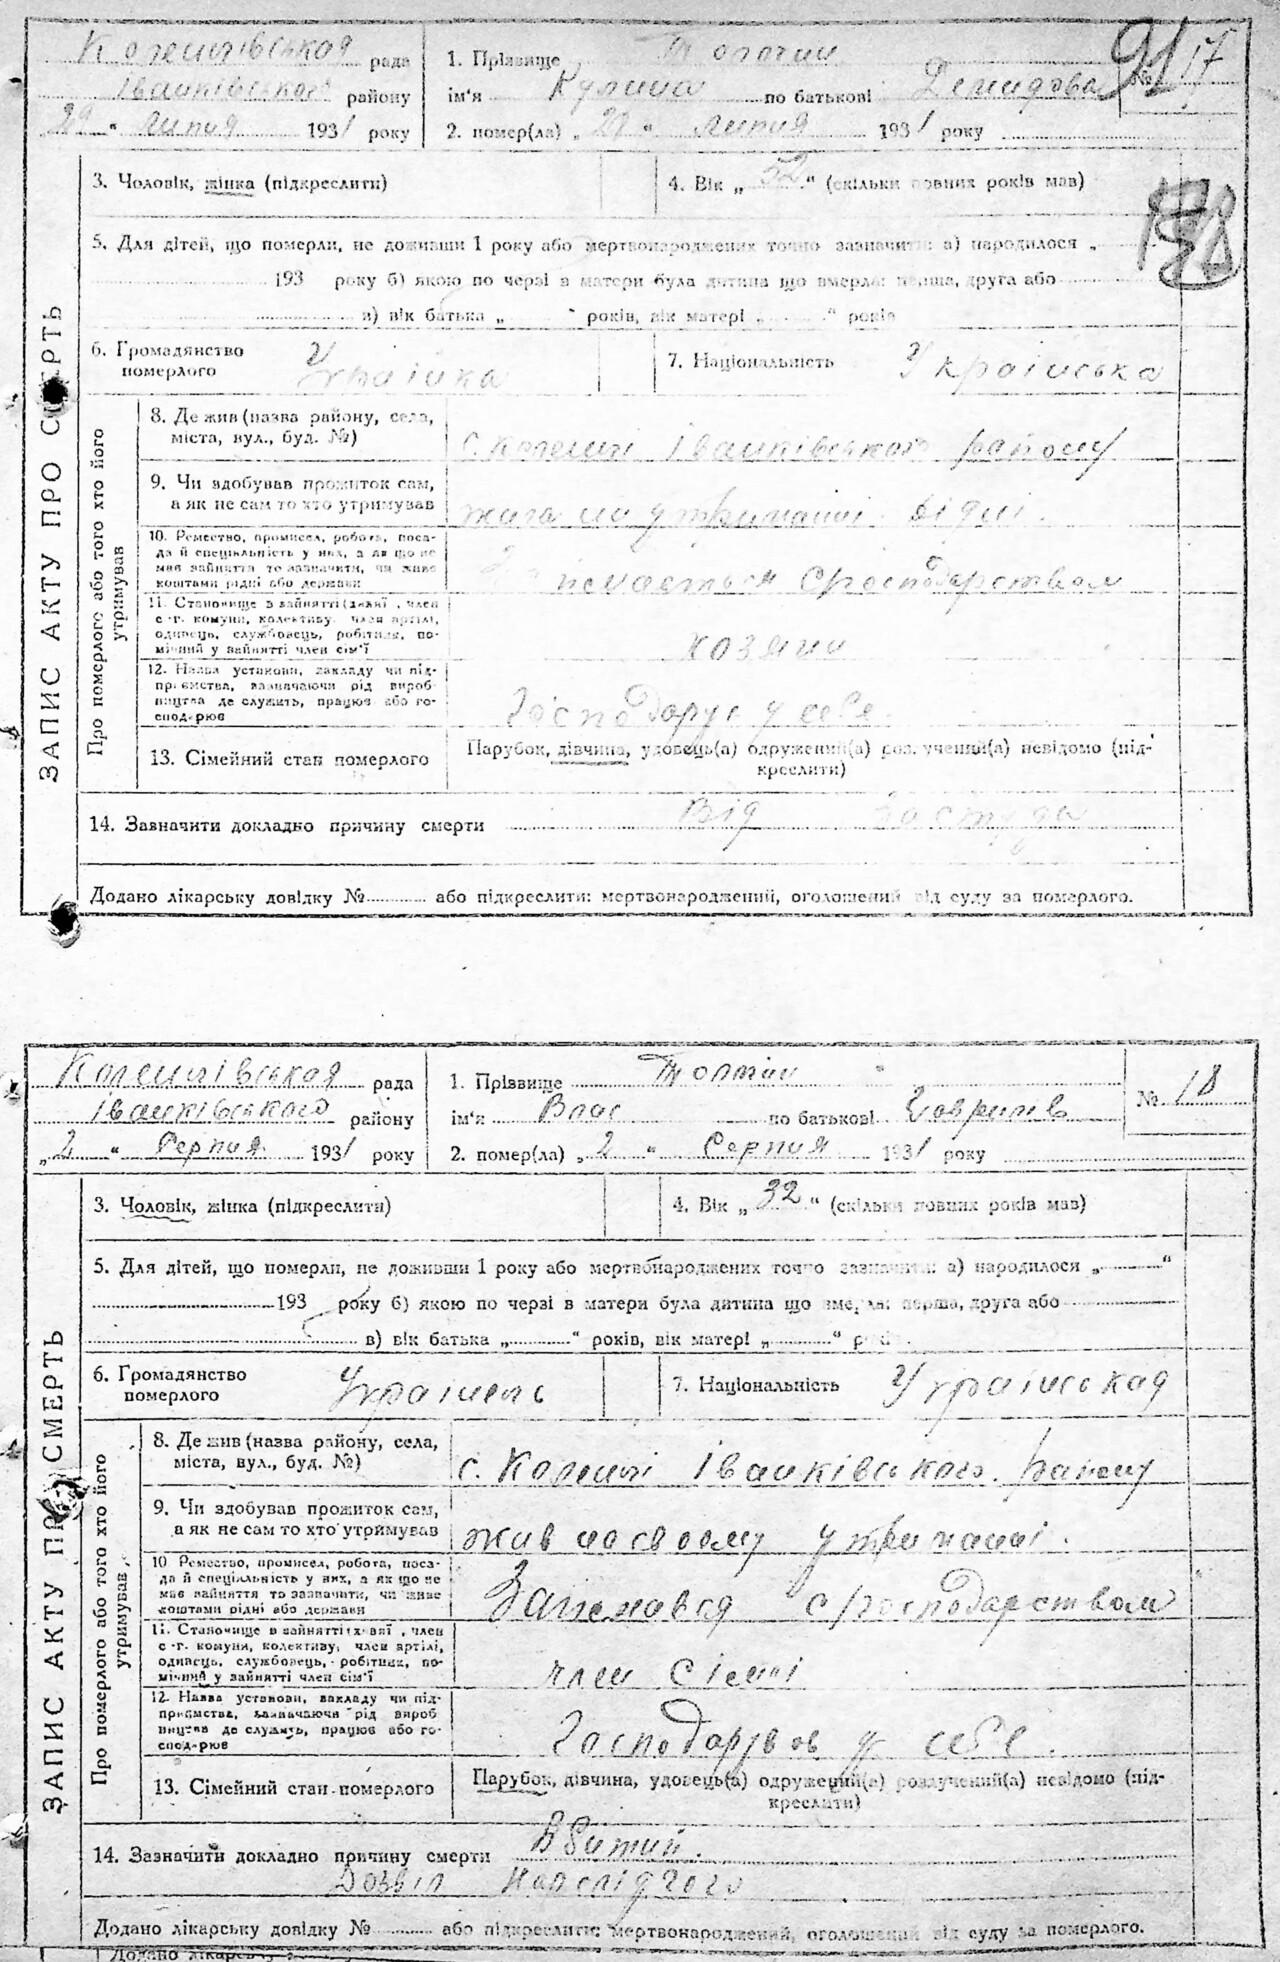 Коленцівская рада
Іванківського району
29 " Липня 1931 року
1. Прізвище Толочин
ім'я Кулина по батькові Демидова
2. помер(ла) „ 29 " Липня 1931 року
№ 17
91
3. Чоловік, жінка (підкреслити)
4. Вік „ 52 " (скільки повних років мав)
5. Для дітей, що померли, не доживши 1 року або мертвонароджених точно зазначити: а) народилося „
193 року б) якою по черзі в матери була дитина що вмерла: перша, друга або
в) вік батька „ " років, вік матері „ " років
6. Громадянство померлого
Українка
7. Національність Українська
ЗАПИС АКТУ ПРО СМЕРТЬ
Про померлого або того хто його утримував
8. Де жив (назва району, села,
міста, вул., буд. №)
с. Коленці Іванківського району
9. Чи здобував прожиток сам,
а як не сам то хто утримував
жила на утриманні
10. Ремество, промисел, робота, поса-
да й спеціяльність у них, а як що не
мав зайняття то зазначити, чи живе
коштами рідні або держави
с/господарством
11. Становище в зайнятті (хазяї, член
с-г. комуни, колективу, член артілі,
одинець, службовець, робітник, по-
мічний у зайнятті член сім'ї
хозяин
12. Назва установи, закладу чи під-
приємства, зазначаючи рід вироб-
ництва де служить, працює або го-
сподарює
Господарує у себе
13. Сімейний стан померлого
Парубок, дівчина, удовець(а) одружений(а) розлучений(а) невідомо (під-
креслити)
14. Зазначити докладно причину смерти Від застуда
Додано лікарську довідку № або підкреслити: мертвонароджений, оголошений від суду за померлого.
Коленцівская рада
Іванківського району
„ 2 " Серпня 1931 року
1. Прізвище Толочин
ім'я Влас по батькові Гаврилів
2. помер(ла) „ 2 " Серпня 1931 року
№ 18
3. Чоловік, жінка (підкреслити)
4. Вік „ 32 " (скільки повних років мав)
5. Для дітей, що померли, не доживши 1 року або мертвонароджених точно зазначити: а) народилося „ "
193 року б) якою по черзі в матери була дитина що вмерла: перша, друга або
в) вік батька „ " років, вік матері „ " років
6. Громадянство
померлого
Українець
7. Національність Українськая
ЗАПИС АКТУ ПРО СМЕРТЬ
Про померлого або того хто його утримував
8. Де жив (назва району, села,
міста, вул., буд. №)
с. Коленці Іванківського району
9. Чи здобував прожиток сам,
а як не сам то хто утримував
жив на своому утриманні.
10 Ремество, промисел, робота, поса-
да й спеціяльність у них, а як що не
мав зайняття то зазначити, чи живе
коштами рідні або держави
Занемався с/господарством
11. Становище в зайнятті (хазяї, член
с-г. комуни, колективу, член артілі,
одинець, службовець, робітник, по-
мічний у зайнятті член сім'ї
член сімні
12. Назва установи, закладу чи під-
приємства, зазначаючи рід вироб-
ництва де служить, працює або го-
сподарює
Господарював у себе.
13. Сімейний стан померлого
Парубок, дівчина, удовець(а) одружений(а) розлучений(а) невідомо (під-
креслити)
14. Зазначити докладно причину смерти Вбитий.
Дозвіл
Додано лікарську довідку № або підкреслити: мертвонароджений, оголошений від суду за померлого.